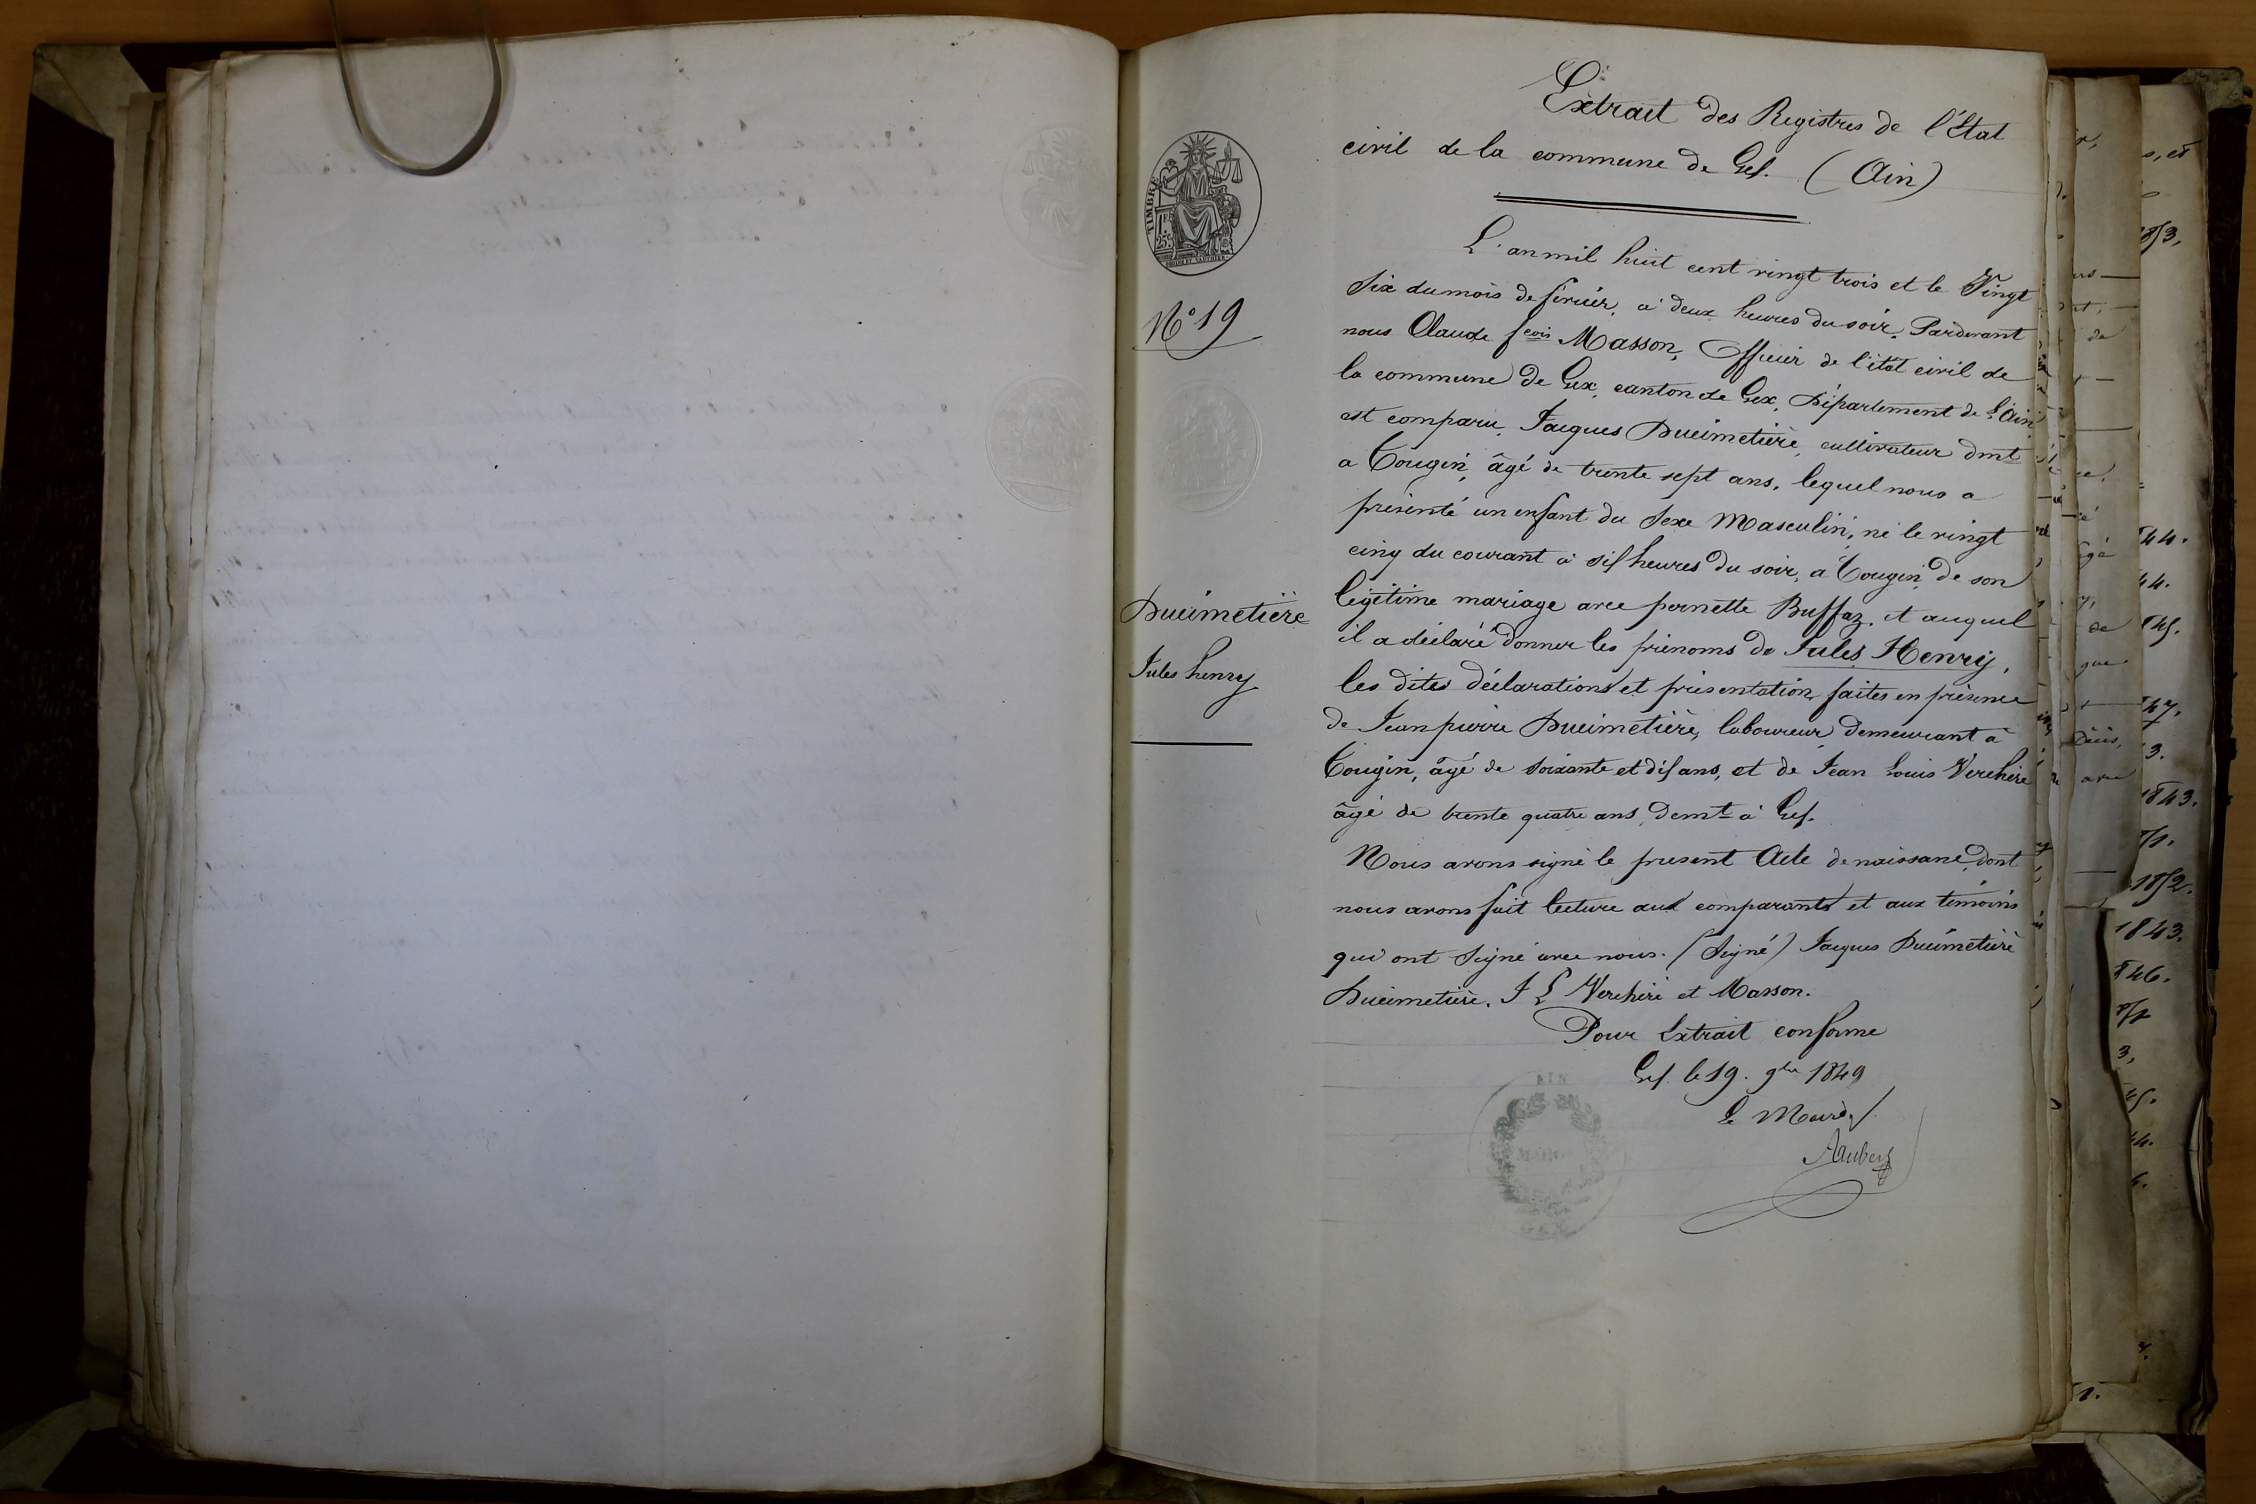 Extrait des Registres de l'État
civil de la commune de Gex. (Ain)
TIMBRE
1F. 25c.
L'an mil huit cent vingt trois et le Vingt
Six du mois de février, à deux heures du soir. Pardevant
N° 19
nous Claude fcois Masson, Officier de l'état civil de
la commune de Gex, canton de Gex, Département de L'Ain
est comparu, Jacques Ducimetière, cultivateur dmt
a Tougin, âgé de trente sept ans, lequel nous a
présenté un enfant du Sexe Masculin, né le vingt
cinq du courant à six heures du soir, a Tougin, de son
Ducimetière
légitime mariage avec pernette Buffaz. et auquel
il a déclaré donner les prénoms de Jules Henry,
Jules henry
les dites déclarations et présentation faites en présence
de Jean pierre Ducimetière, laboureur demeurant à
Tougin, âgé de soixante et dix ans, et de Jean Louis Verchère
âgé de trente quatre ans, demt à Gex.
Nous avons signé le present Acte de naissance, dont
nous avons fait lecture aux comparants et aux témoins
qui ont Signé avec nous. (Signé) Jacques Ducimetière
Ducimetière. J L Verchère et Masson.
Pour Extrait conforme
Gex. le 19. 9bre 1849
Le Maire,
AIN
MAIRIE
GEX